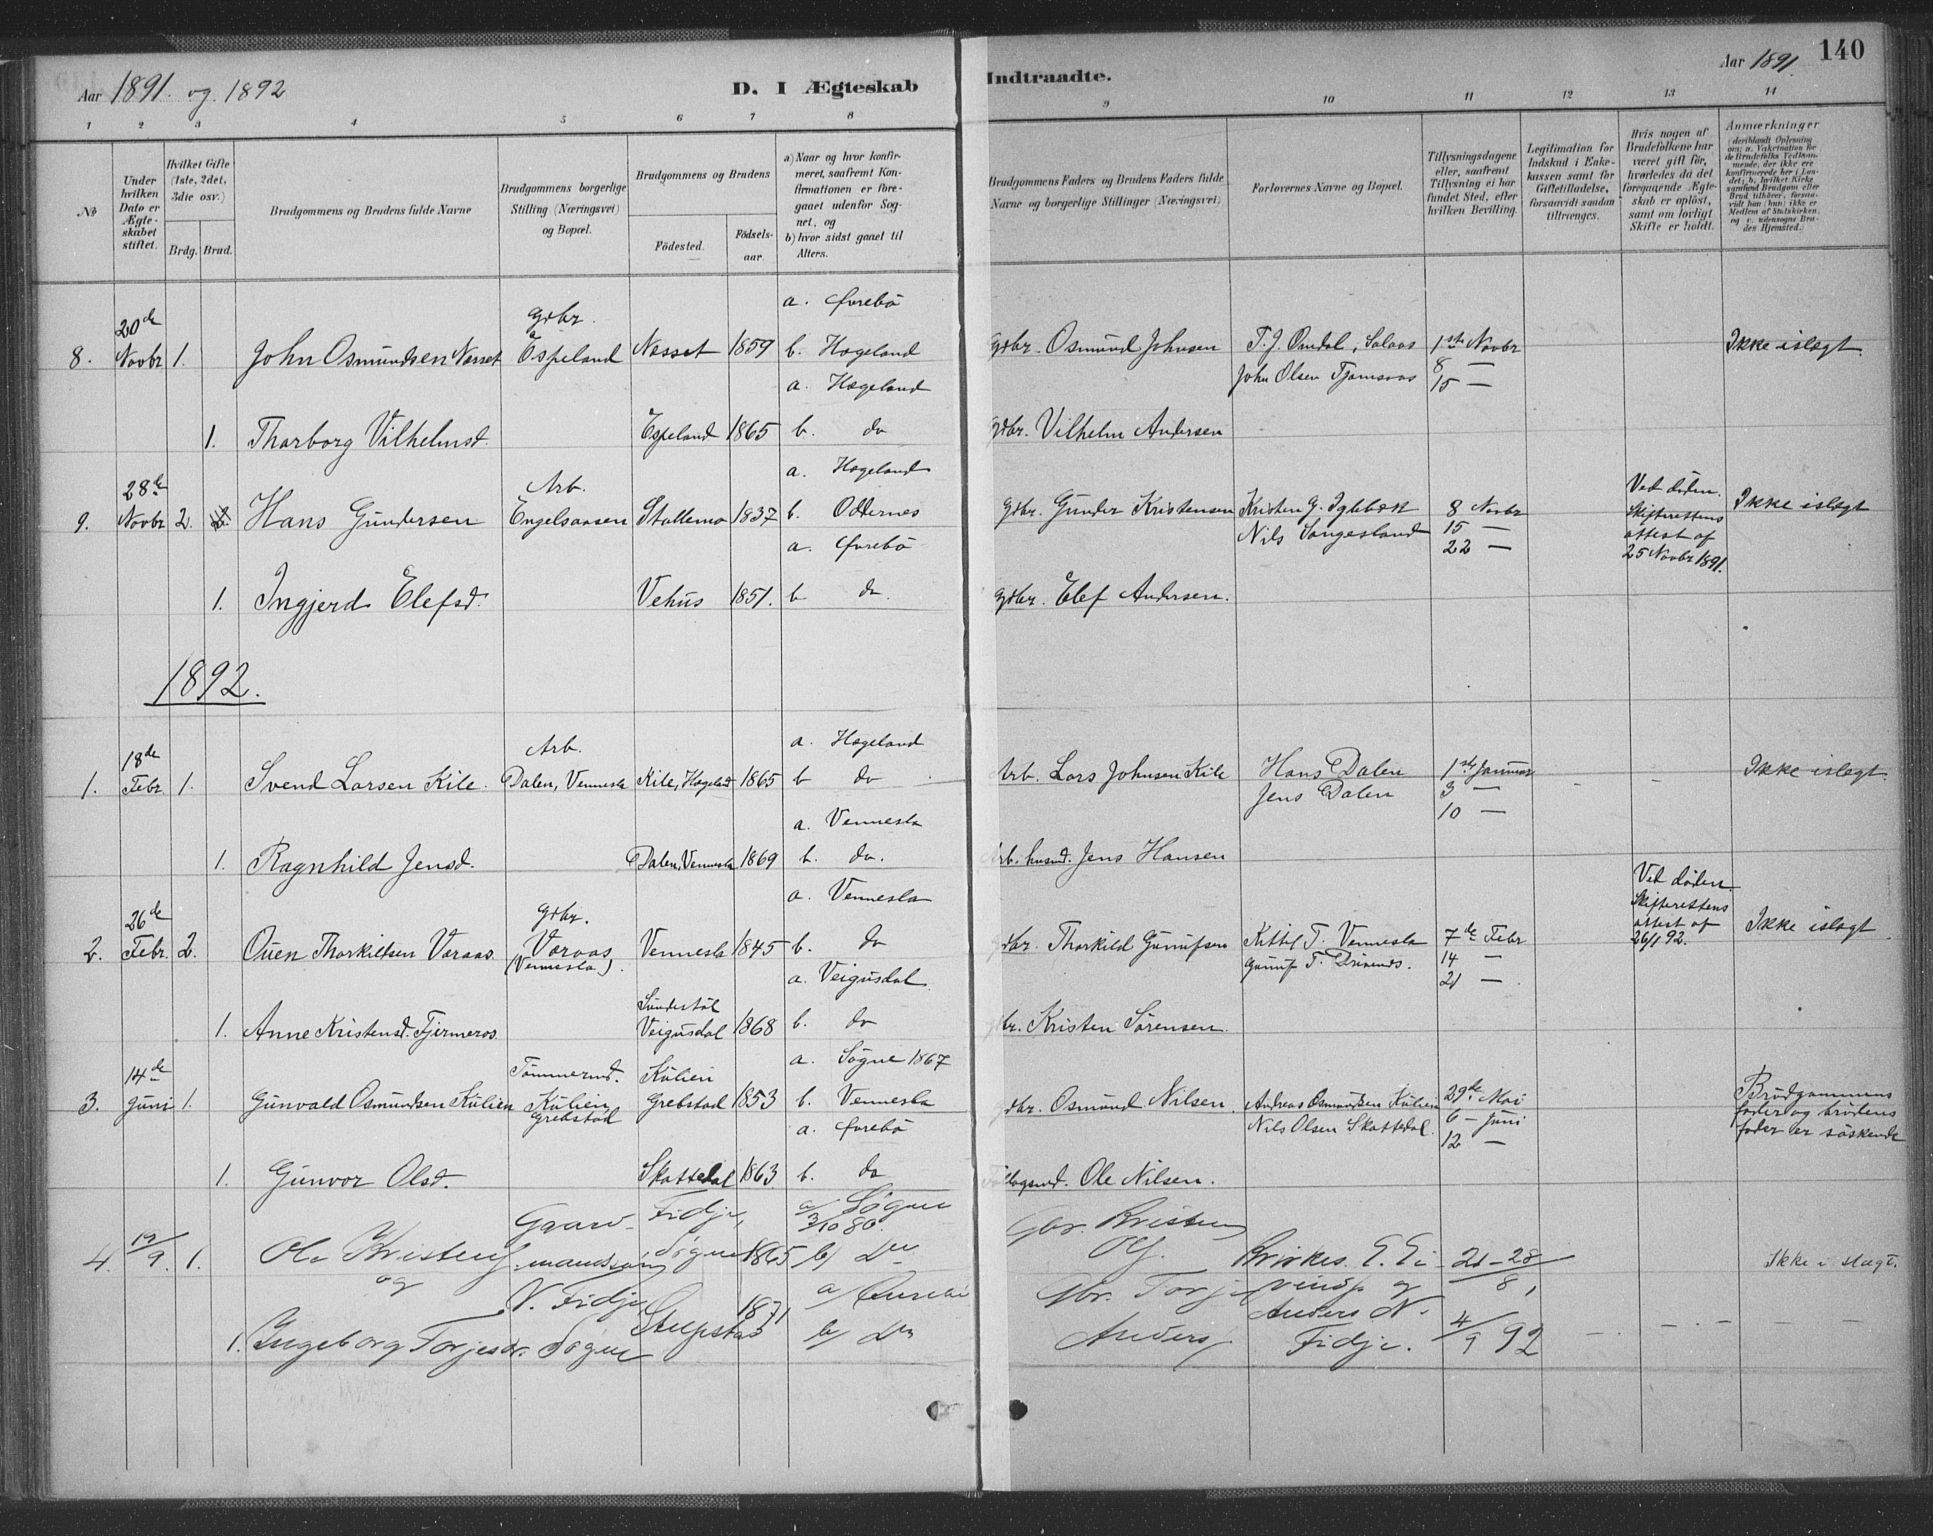 Aar 1891. og 1892
D. I Ægteskab
Indtraadte.
Aar 1891.
140
1 2 3 4 5 6 7 8 9 10 11 12 13 14
No
Under hvilken Dato er Ægteskabet stiftet.
Hvilket Gifte (1ste, 2det, 3die osv.)
Brdg. Brud.
Brudgommens og Brudens fulde Navne
Brudgommens borgerlige Stilling (Næringsvei) og Bopæl.
Brudgommens og Brudens
Födested.
Födselsaar.
a) Naar og hvor konfirmeret, saafremt Konfirmationen er foregaaet udenfor Sognet, og
b) hvor sidst gaaet til Alters.
Brudgommens Faders og Brudens Faders fulde Navne og borgerlige Stillinger (Næringsvei)
Forlovernes Navne og Bopæl.
Tillysningsdagene eller, saafremt Tillysning ei har fundet Sted, efter hvilken Bevilling.
Legitimation for Indskud i Enkekassen samt for Giftetilladelse, forsaavidt saadan tiltrænges.
Hvis nogen af Brudefolkene har været gift för, hvorledes da det foregaaende Ægteskab er oplöst, samt om lovligt Skifte er holdt.
Anmærkninger
8. 20de Novbr 1. John Osmundsen Nesset Gdbr. Espeland Nesset 1859 a. Øvrebö b. Hægeland
Gdbr. Osmund Johnsen T. J. Omdal, John Olsen 1ste Novbr 8 — 15 — Ikke islægt.
1. Thorborg Vilhelmsd. Espeland 1865 a. Hægeland b. do
Gdbr. Vilhelm Andersen
9. 28de Novbr 2. 2. Hans Gundersen Arb. Engelsaasen Stallemo 1837 a. Hægeland b. Oddernes
Gdbr. Gunder Kristensen Kristen G. Nils 8 Novbr 15 — 22 — Ved döden. Skifterettens attest af 25 Novbr 1891. Ikke islægt
1. Ingjerd Elefsd. Vehus 1851. a. Øvrebö b do.
Gdbr. Elef Andersen.
1892.
1. 18de Febr. 1. Svend Larsen Kile. Arb. Dalen, Vennesla Kile, Hægeland 1865 a. Hægeland b do
Arb. Lars Johnsen Kile Hans Dalen Jens Dalen 1ste Januar 3 — 10 — Ikke islægt.
1. Ragnhild Jensd. Dalen, Vennesla 1869 a. Vennesla b. do.
Arb. husmd. Jens Hansen
2. 26de Febr. 2. Ouen Thorkildsen Varaas. Gdbr. Varaas (Vennesla). Vennesla 1845 a. Vennesla b. do
Gdbr. Thorkild Gunufsen Kittel T. Vennesla Gunuf T. 7de Febr 14 — 21 — Ved döden. Skifterettens attest af 26/1 92. Ikke islægt
1. Anne Kristensd. Fjermeros. Veigusdal 1868 a. Veigusdal b. do
Gdbr. Kristen Sörensen.
3. 14de Juni 1. Gunvald Osmundsen Kulien Tömmermd. Kulien Grebstad Kulien Grebstad 1853 a. Sögne 1867 b. Vennesla
Gdbr. Osmund Nilsen. Andreas Osmundsen Kulien Nils Olsen Skattedal. 29de Mai 6 — Juni 12 — Brudgommens fader og brudens fader er söskende
1. Gunvor Olsd. Skattedal 1863 a. Øvrebö b. do
Ole Nilsen.
4. 19/9. 1. Ole Kristens. og Gaardmandssön N. Fidje Sögne Fidje, Sögne 1865 a/ Sögne 3/10 80. b/ Do
Gbr. Kristen Ols. Kirkes. E. Ei- og Anders N. Fidje. 21-28/8, 4/9 92 Ikke i slægt.
1. Ingeborg Torjesdr. 1871 a/ b/ Do
Gbr. Torje Anders.